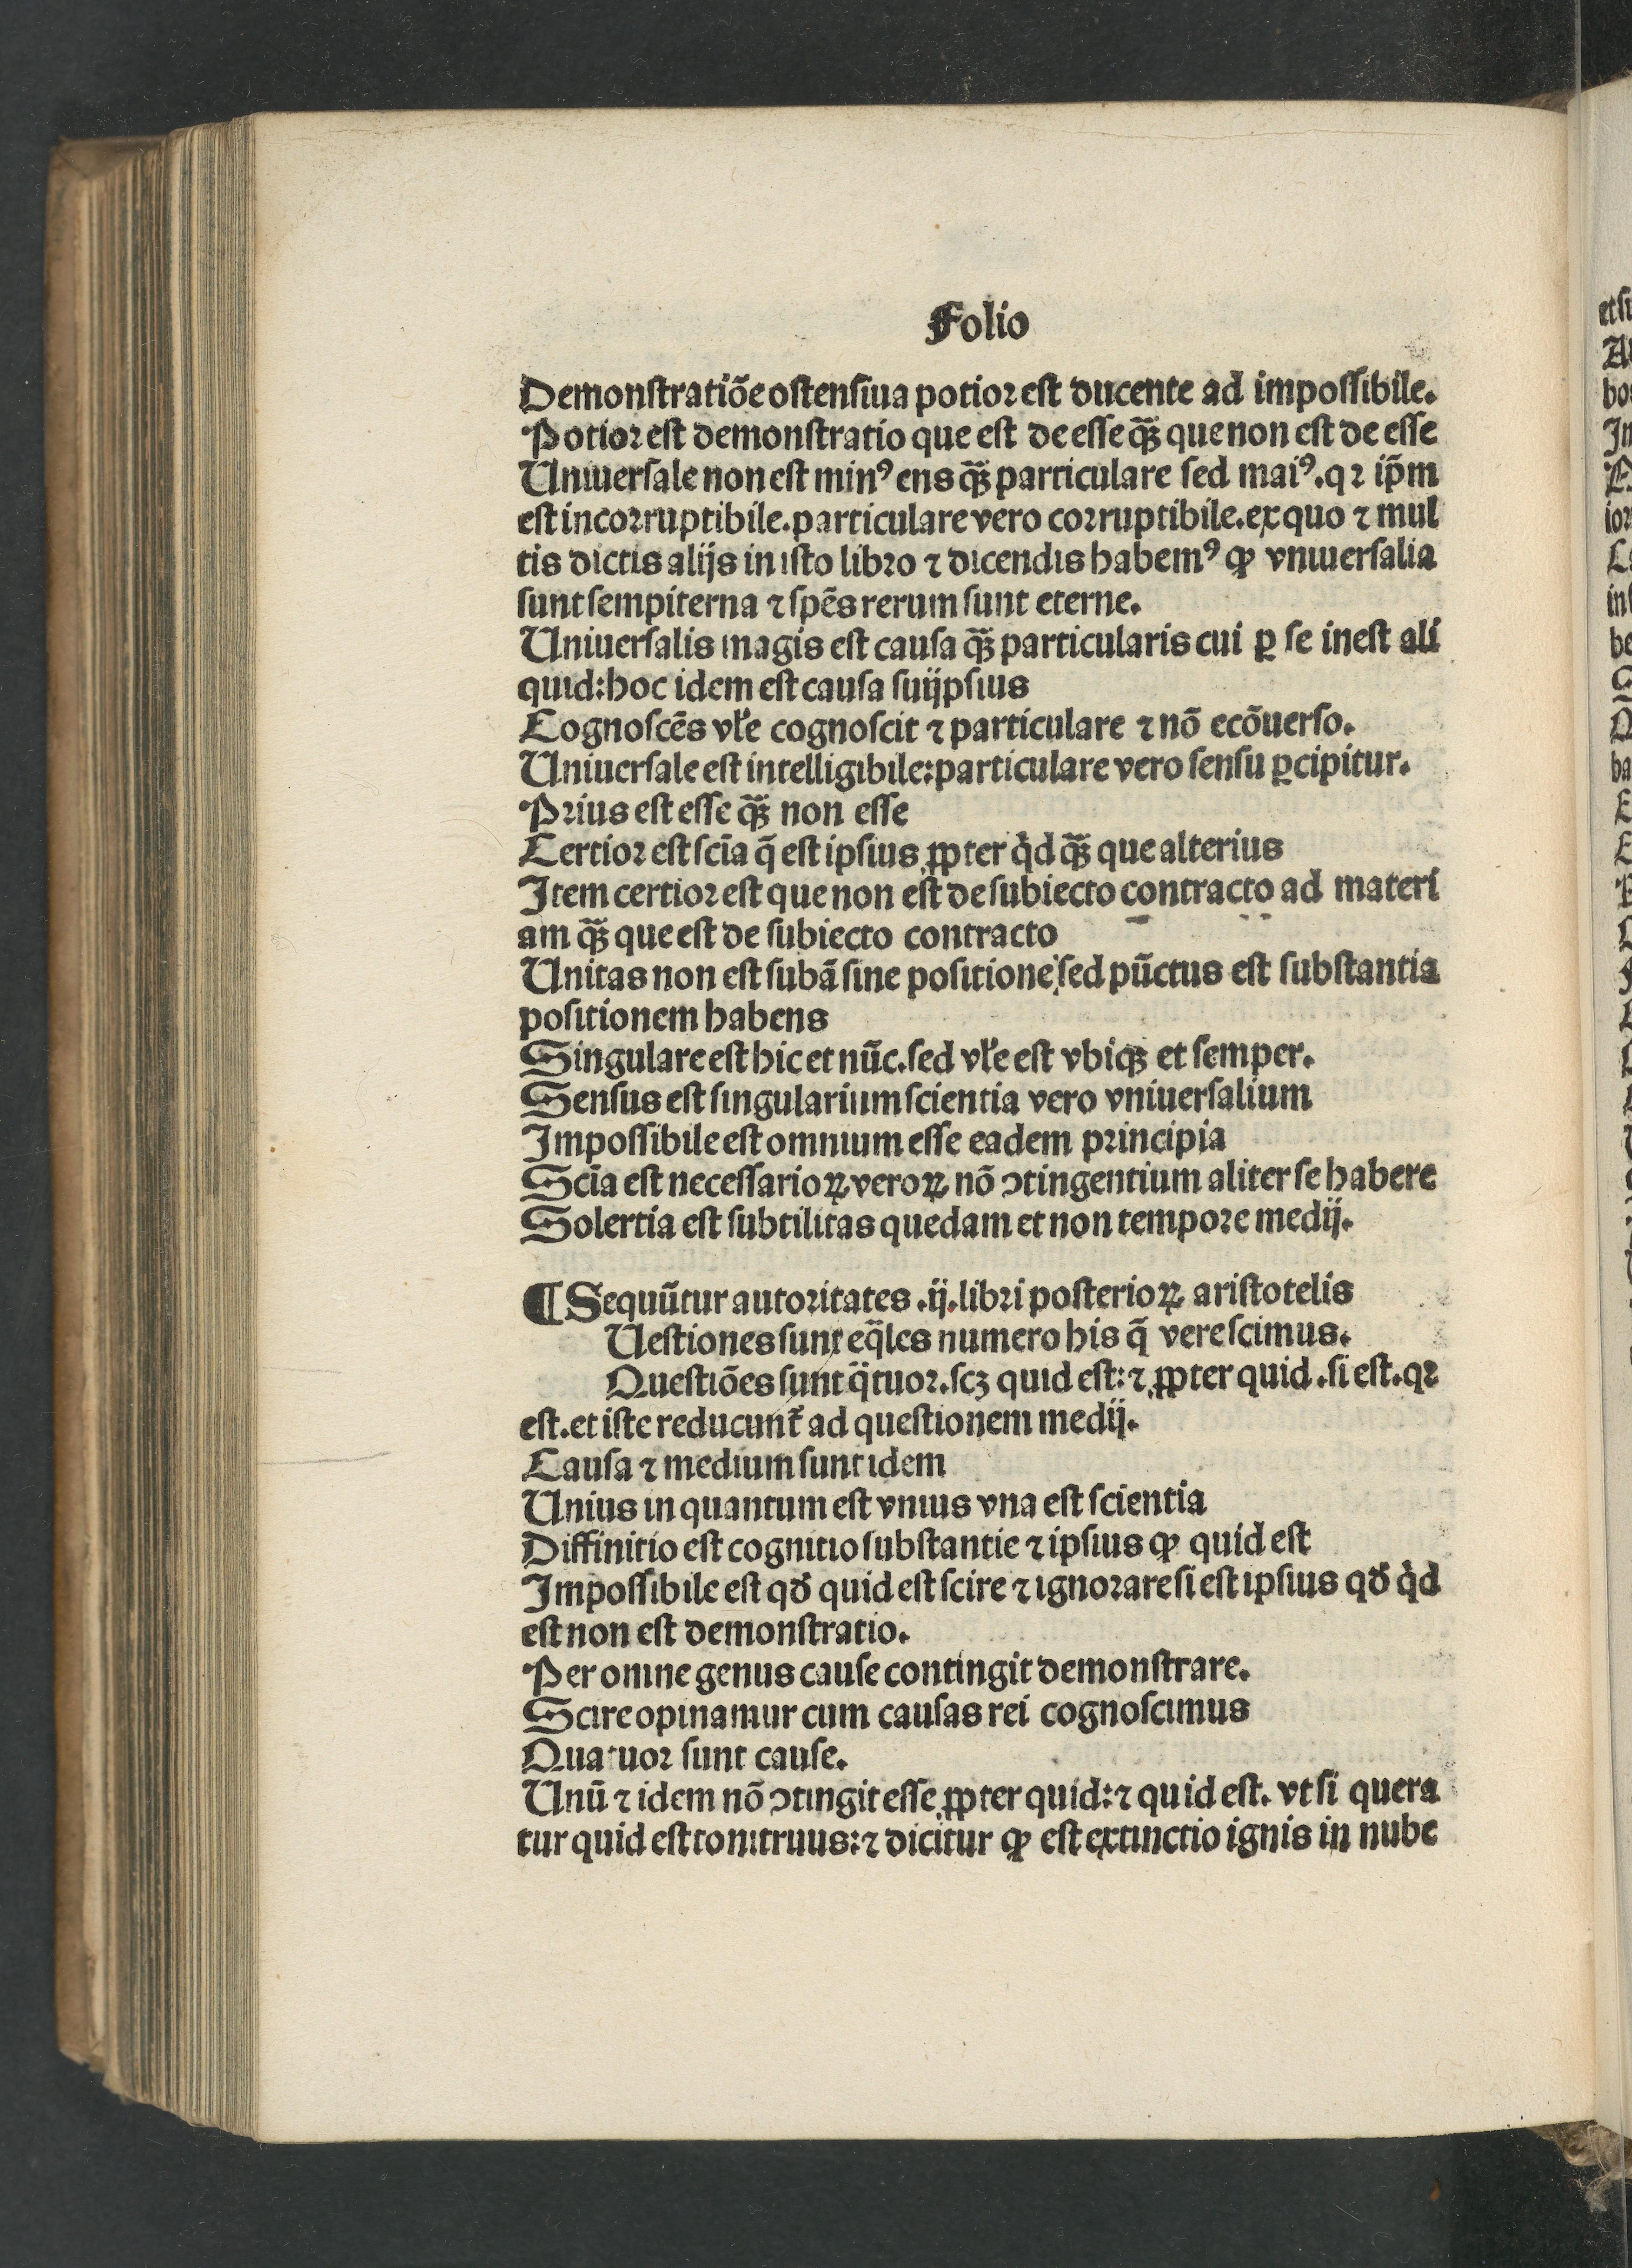 Folio
Demonstratiõe ostensiua potior est ducente ad impossibile.
Potior est demonstratio que est de esse q̃ꝫ que non est de esse
Uniuersale non est minꝰ ens q̃ꝫ particulare sed maiꝰ. qꝛ ip̃m
est incorruptibile. particulare vero corruptibile. ex quo ⁊ mul
tis dictis alijs in isto libro ⁊ dicendis habemꝰ ꝙ vniuersalia
sunt sempiterna ⁊ spẽs rerum sunt eterne.
Uniuersalis magis est causa q̃ꝫ particularis cui ꝑ se inest ali
quid: hoc idem est causa suijpsius
Cognoscẽs vl̕e cognoscit ⁊ particulare ⁊ nõ ecõuerso.
Uniuersale est intelligibile: particulare vero sensu ꝑcipitur.
Prius est esse q̃ꝫ non esse
Certior est scĩa q̃ est ipsius ꝓpter qͥd q̃ꝫ que alterius
Item certior est que non est de subiecto contracto ad materi
am q̃ꝫ que est de subiecto contracto
Unitas non est subã sine positione: sed pũctus est substantia
positionem habens
Singulare est hic et nũc. sed vl̕e est vbiqꝫ et semper.
Sensus est singularium scientia vero vniuersalium
Impossibile est omnium esse eadem principia
Scĩa est necessarioꝝ veroꝝ nõ ↄtingentium aliter se habere
Solertia est subtilitas quedam et non tempore medij.
¶ Sequũtur autoritates .ij. libri posterioꝝ aristotelis
Uestiones sunt eq̃les numero his q̃ vere scimus.
Questiões sunt q̃tuor. scꝫ quid est: ⁊ ꝓpter quid. si est. qꝛ
est. et iste reducunt᷑ ad questionem medij.
Causa ⁊ medium sunt idem
Unius in quantum est vnius vna est scientia
Diffinitio est cognitio substantie ⁊ ipsius ꝙ quid est
Impossibile est qđ quid est scire ⁊ ignorare si est ipsius qđ qͥd
est non est demonstratio.
Per omne genus cause contingit demonstrare.
Scire opinamur cum causas rei cognoscimus
Quatuor sunt cause.
Unũ ⁊ idem nõ ↄtingit esse ꝓpter quid: ⁊ quid est. vt si quera
tur quid est tonitruus: ⁊ dicitur ꝙ est extinctio ignis in nube